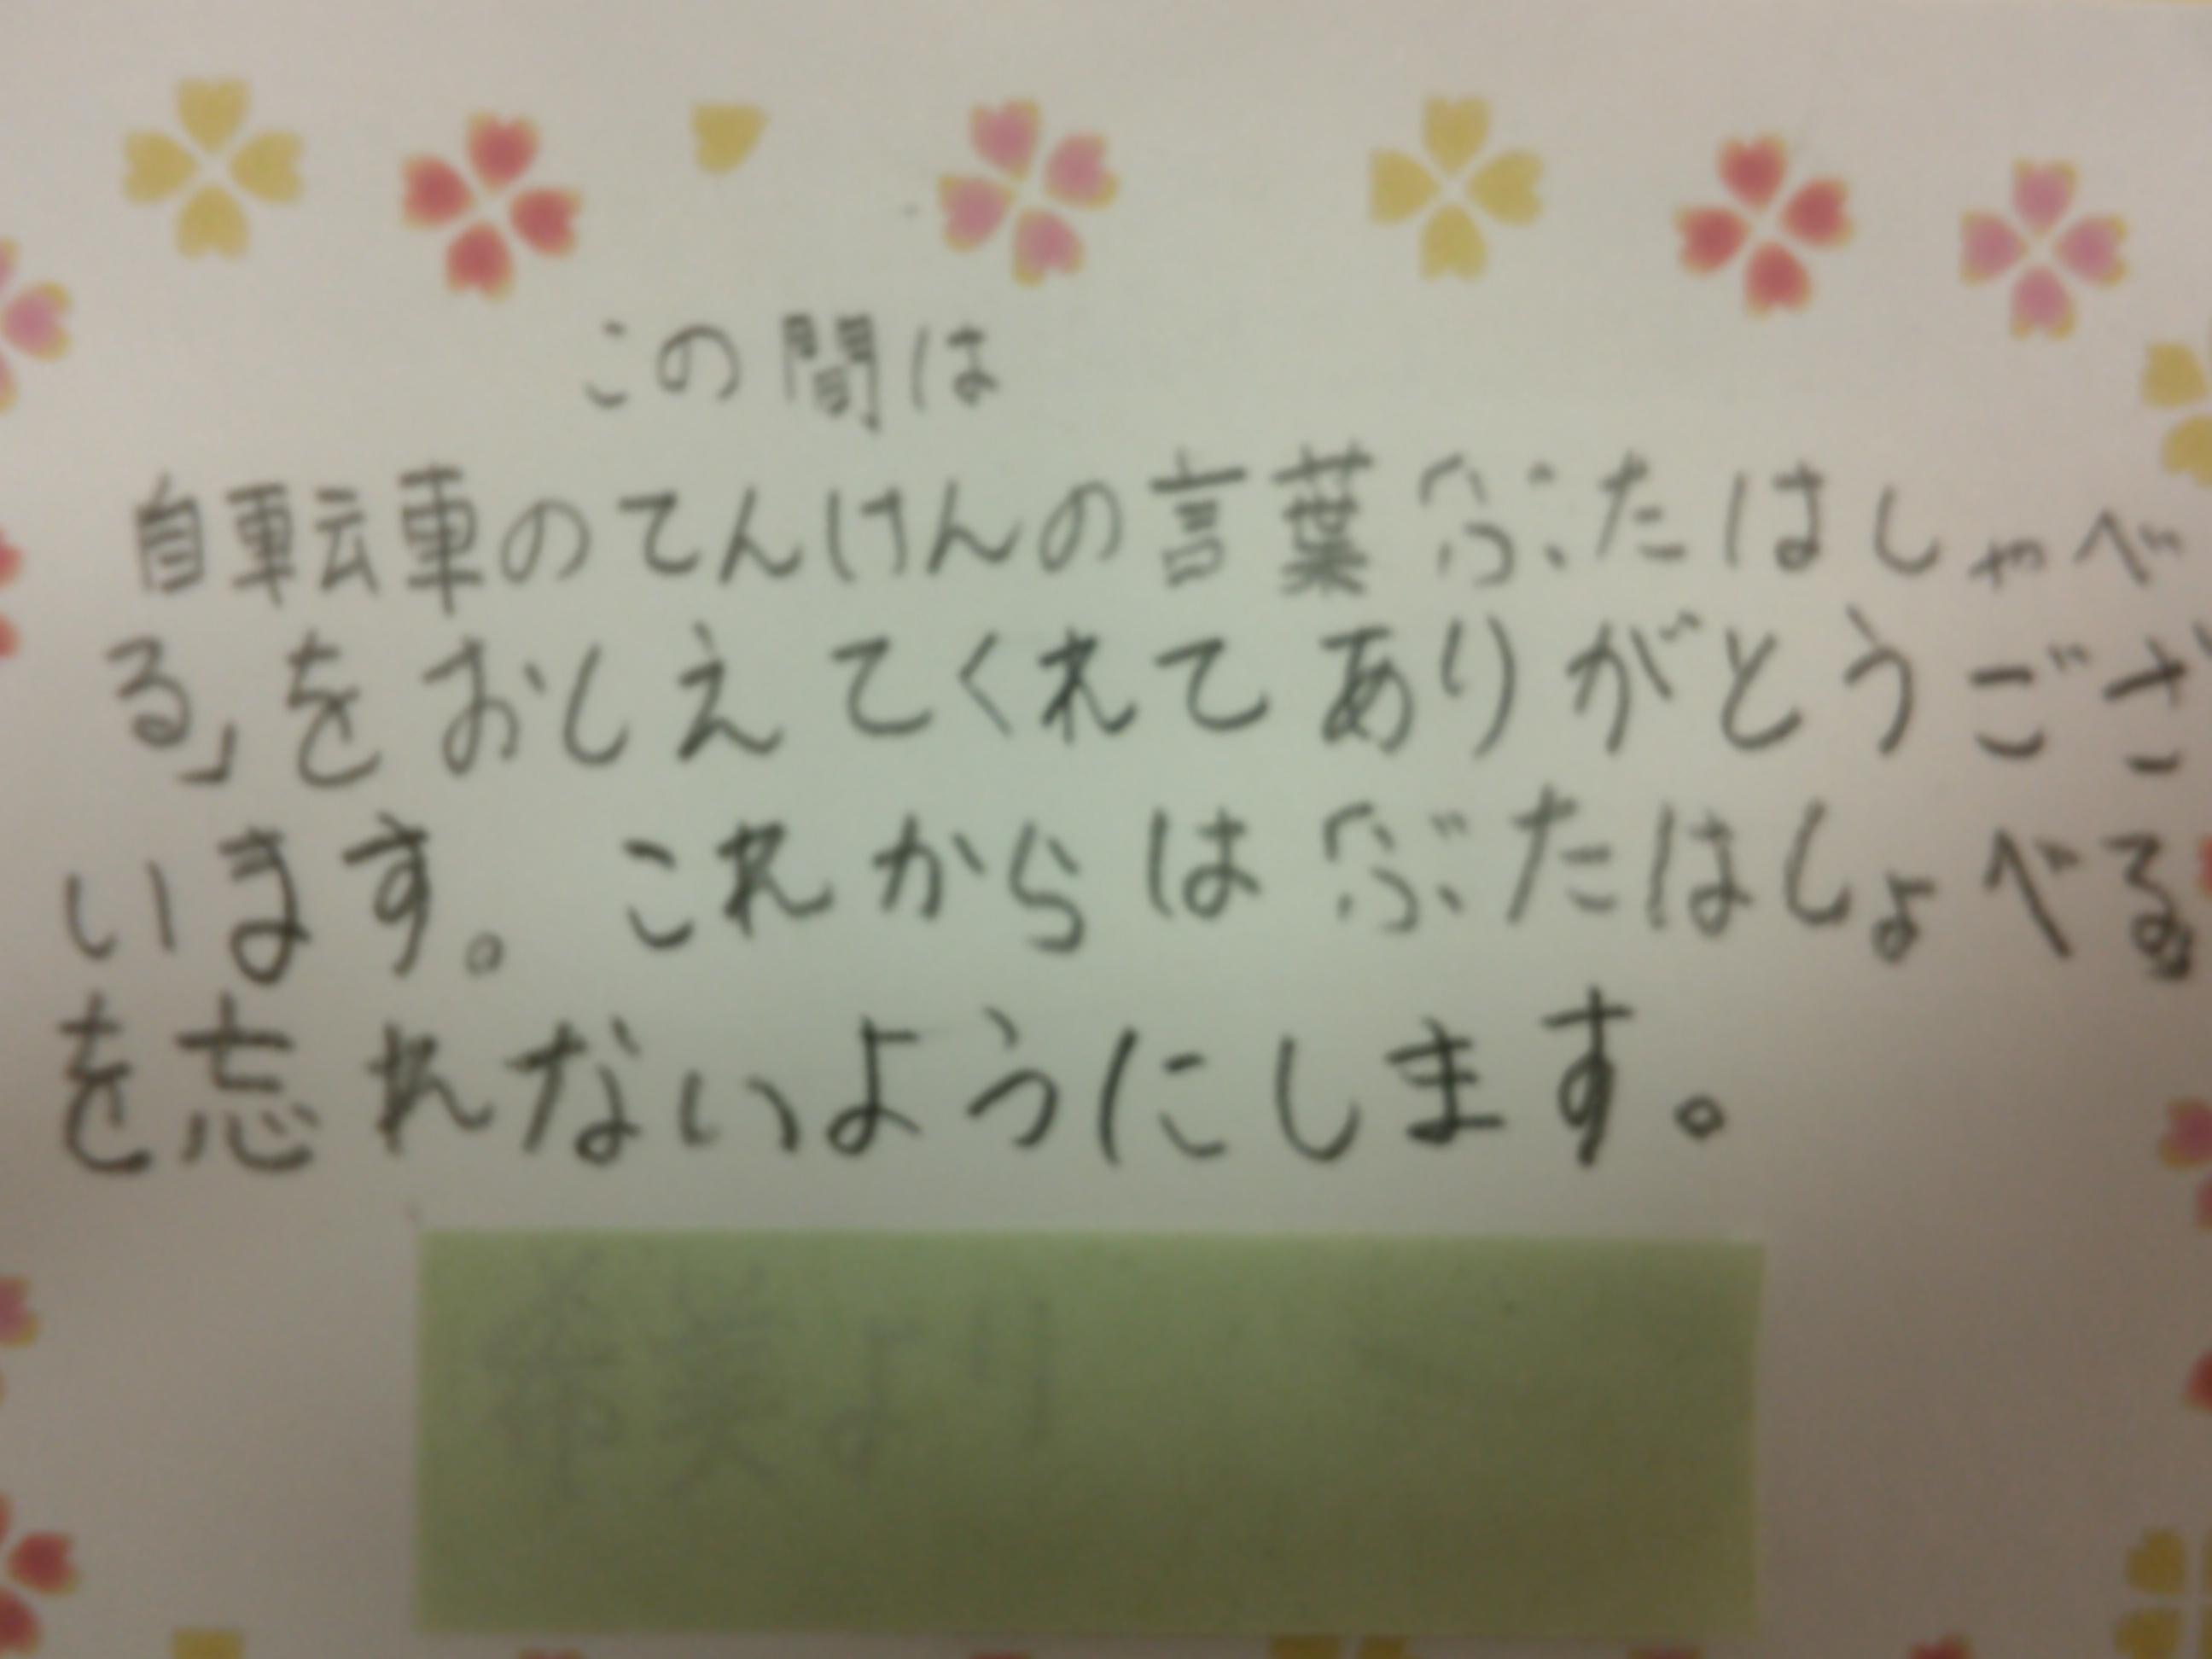 この間は
自転車のてんけんの言葉「ぶたはしゃべ
る」をおしえてくれてありがとうござ
います。これからは「ぶたはしょべる
を忘れないようにします。